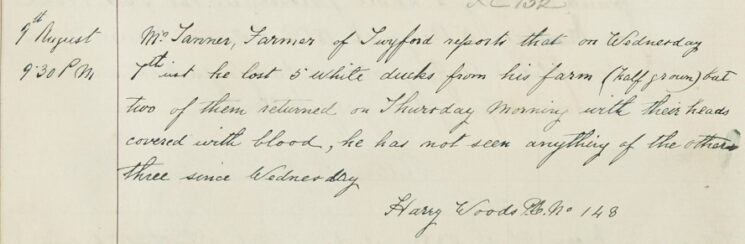 9th August
9.30 P M
Mr Tanner, Farmer of Twyford reports that on Wednesday
7th inst he lost 5 white ducks from his farm (half grown) but
two of them returned on Thursday Morning with their heads
covered with blood, he has not seen anything of the other
three since Wednesday
Harry Woods P.C. No 148